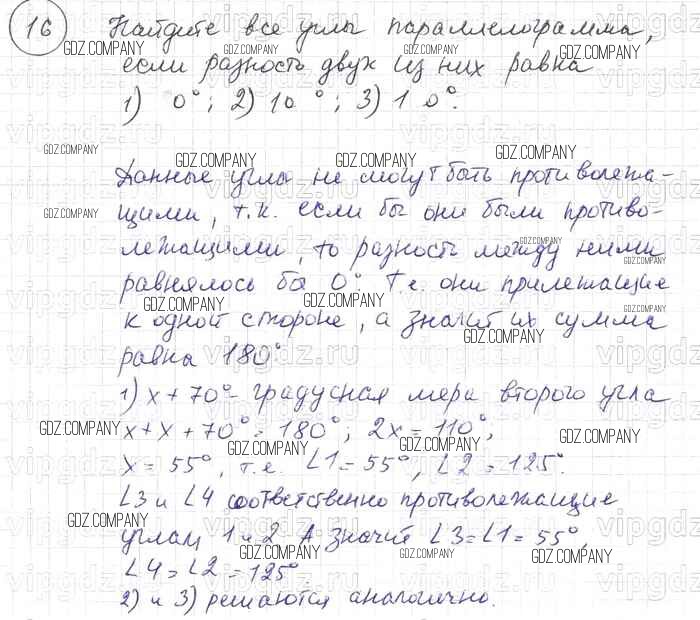 16 Найдите все углы параллелограмма,
если разность двух из них равна
1) 0°; 2) 10°; 3) 1 0°.
Данные углы не могут быть противолежа-
щими, т.к. если бы они были противо-
лежащими, то разность между ними
равнялось бы 0°. Т.е. они прилежащие
к одной стороне, а значит их сумма
равна 180°
1) x + 70° - градусная мера второго угла
x + x + 70° = 180°; 2x = 110°;
x = 55°, т.е. ∠1 = 55°, ∠2 = 125°.
∠3 и ∠4 соответственно противолежащие
углам 1 и 2. А значит ∠3 = ∠1 = 55°,
∠4 = ∠2 = 125°
2) и 3) решаются аналогично.
GDZ.COMPANY
vipgdz.ru